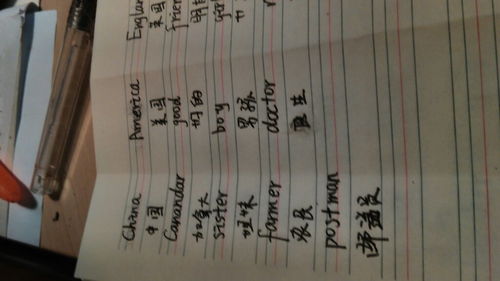 China America Englan
中国 美国 英国
Canandar good frien
加拿大 好的
Sister boy
姐妹 男孩
farmer doctor
农民 医生
postman
邮递员